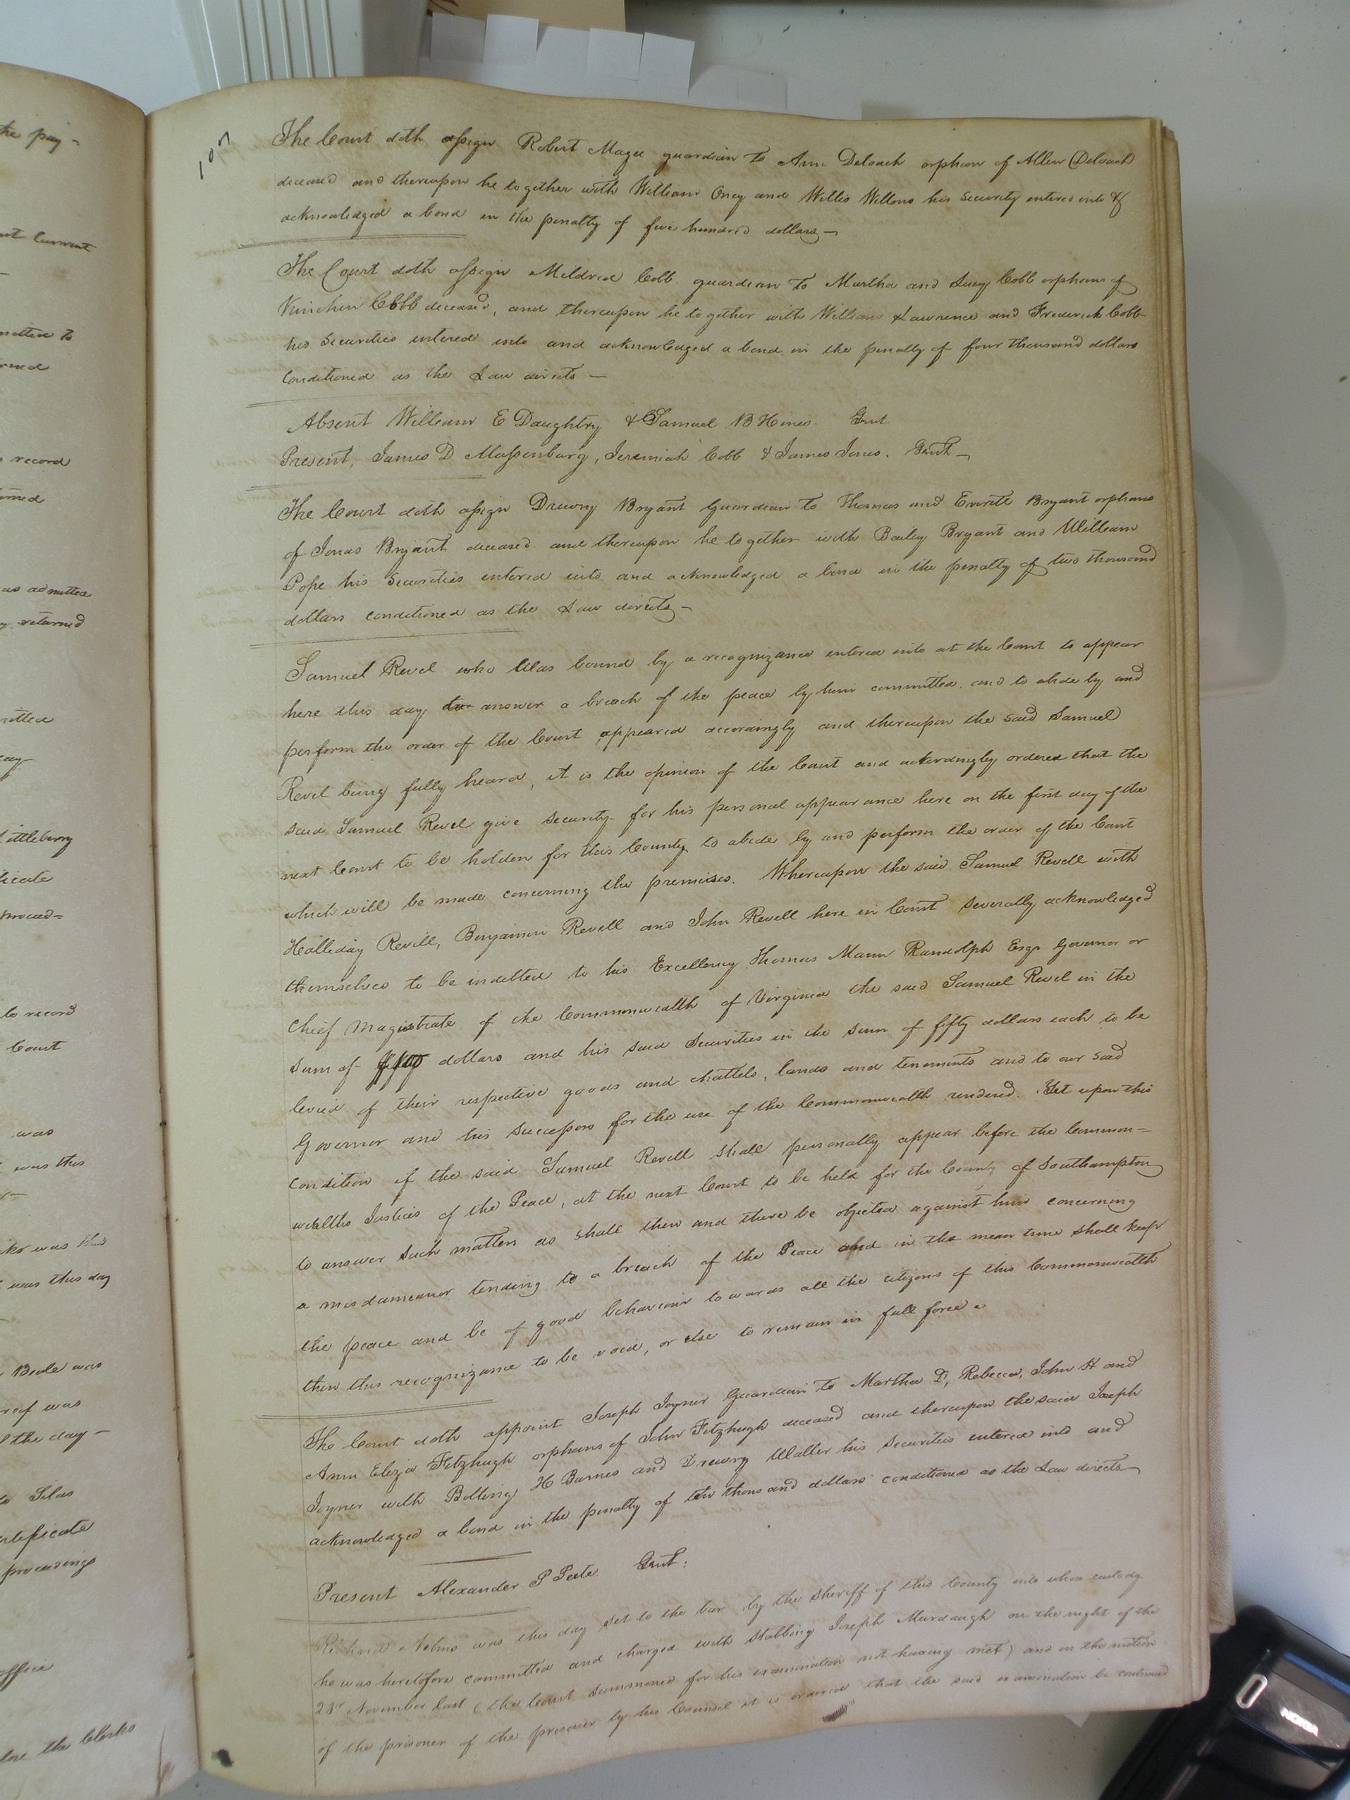 the pay-
nt Current
mitted to
rned
record
rned
as admitted
returned
mitted
Littlebury
ficate
proceed=
to record
Court
was
was this
was this day
Beale was
was
the day -
to Silas
Certificate
proceedings
office
fore the Clerks
107
The Court doth assign Robert Magee guardian to Ann Deloach orphan of Allen Deloach
deceased and thereupon he together with William Oney and Willis Willons his Security entered into &
acknowledged a bond in the penalty of five hundred dollars —
The Court doth assign Mildred Cobb guardian to Martha and Lucy Cobb orphans of
Kinchen Cobb deceased, and thereupon he together with William Lawrence and Frederick Cobb
his Securities entered into and acknowledged a bond in the penalty of four thousand dollars
Conditioned as the Law directs —
Absent William E Daughtry & Samuel B Hines Gent
Present, James D Massenburg, Jeremiah Cobb & James Jones. Gent —
The Court doth assign Drewry Bryant Guardian to Thomas and Everitt Bryant orphans
of Jonas Bryant deceased and thereupon he together with Bailey Bryant and William
Pope his Securities entered into and acknowledged a bond in the penalty of two thousand
dollars conditioned as the Law directs —
Samuel Revel who was bound by a recognizance entered into at the Court to appear
here this day to answer a breach of the peace by him committed and to abide by and
perform the order of the Court appeared accordingly and thereupon the said Samuel
Revel being fully heard, it is the opinion of the Court and accordingly ordered that the
said Samuel Revel give security for his personal appearance here on the first day of the
next Court to be holden for this County to abide by and perform the order of the Court
which will be made concerning the premises. Whereupon the said Samuel Revell with
Halliday Revill, Benjamin Revell and John Revell here in Court severally acknowledged
themselves to be indebted to his Excellency Thomas Mann Randolph Esqr Governor or
Chief Magistrate of the Commonwealth of Virginia the said Samuel Revel in the
Sum of dollars and his said Securities in the Sum of fifty dollars each to be
levied of their respective goods and chattels, lands and tenements and to our said
Governor and his Successors for the use of the Commonwealth rendered. Yet upon this
condition if the said Samuel Revell shall personally appear before the Common=
wealths Justices of the Peace, at the next Court to be held for the County of Southampton
to answer such matters as shall then and there be objected against him concerning
a misdameanor tending to a breach of the Peace and in the mean time shall keep
the peace and be of good behaviour towards all the citizens of this Commonwealth
then this recognizance to be void, or else to remain in full force.
The Court doth appoint Joseph Joyner Guardian to Martha D, Rebecca, John H and
Ann Eliza Fitzhugh orphans of John Fitzhugh deceased and thereupon the said Joseph
Joyner with Bolling H Barnes and Drewry Waller his Securities entered into and
acknowledged a bond in the penalty of ten thousand dollars conditioned as the Law directs —
Present Alexander P Peete Gent:
Richard Nelms was this day set to the bar by the Sheriff of this County into whose custody
he was heretofore committed and charged with stabbing Joseph Murdaugh on the night of the
November last (the Court summoned for his examination not having met) and on the motion
of the prisoner by his Counsel it is ordered that the said examination be continued
NOKIA